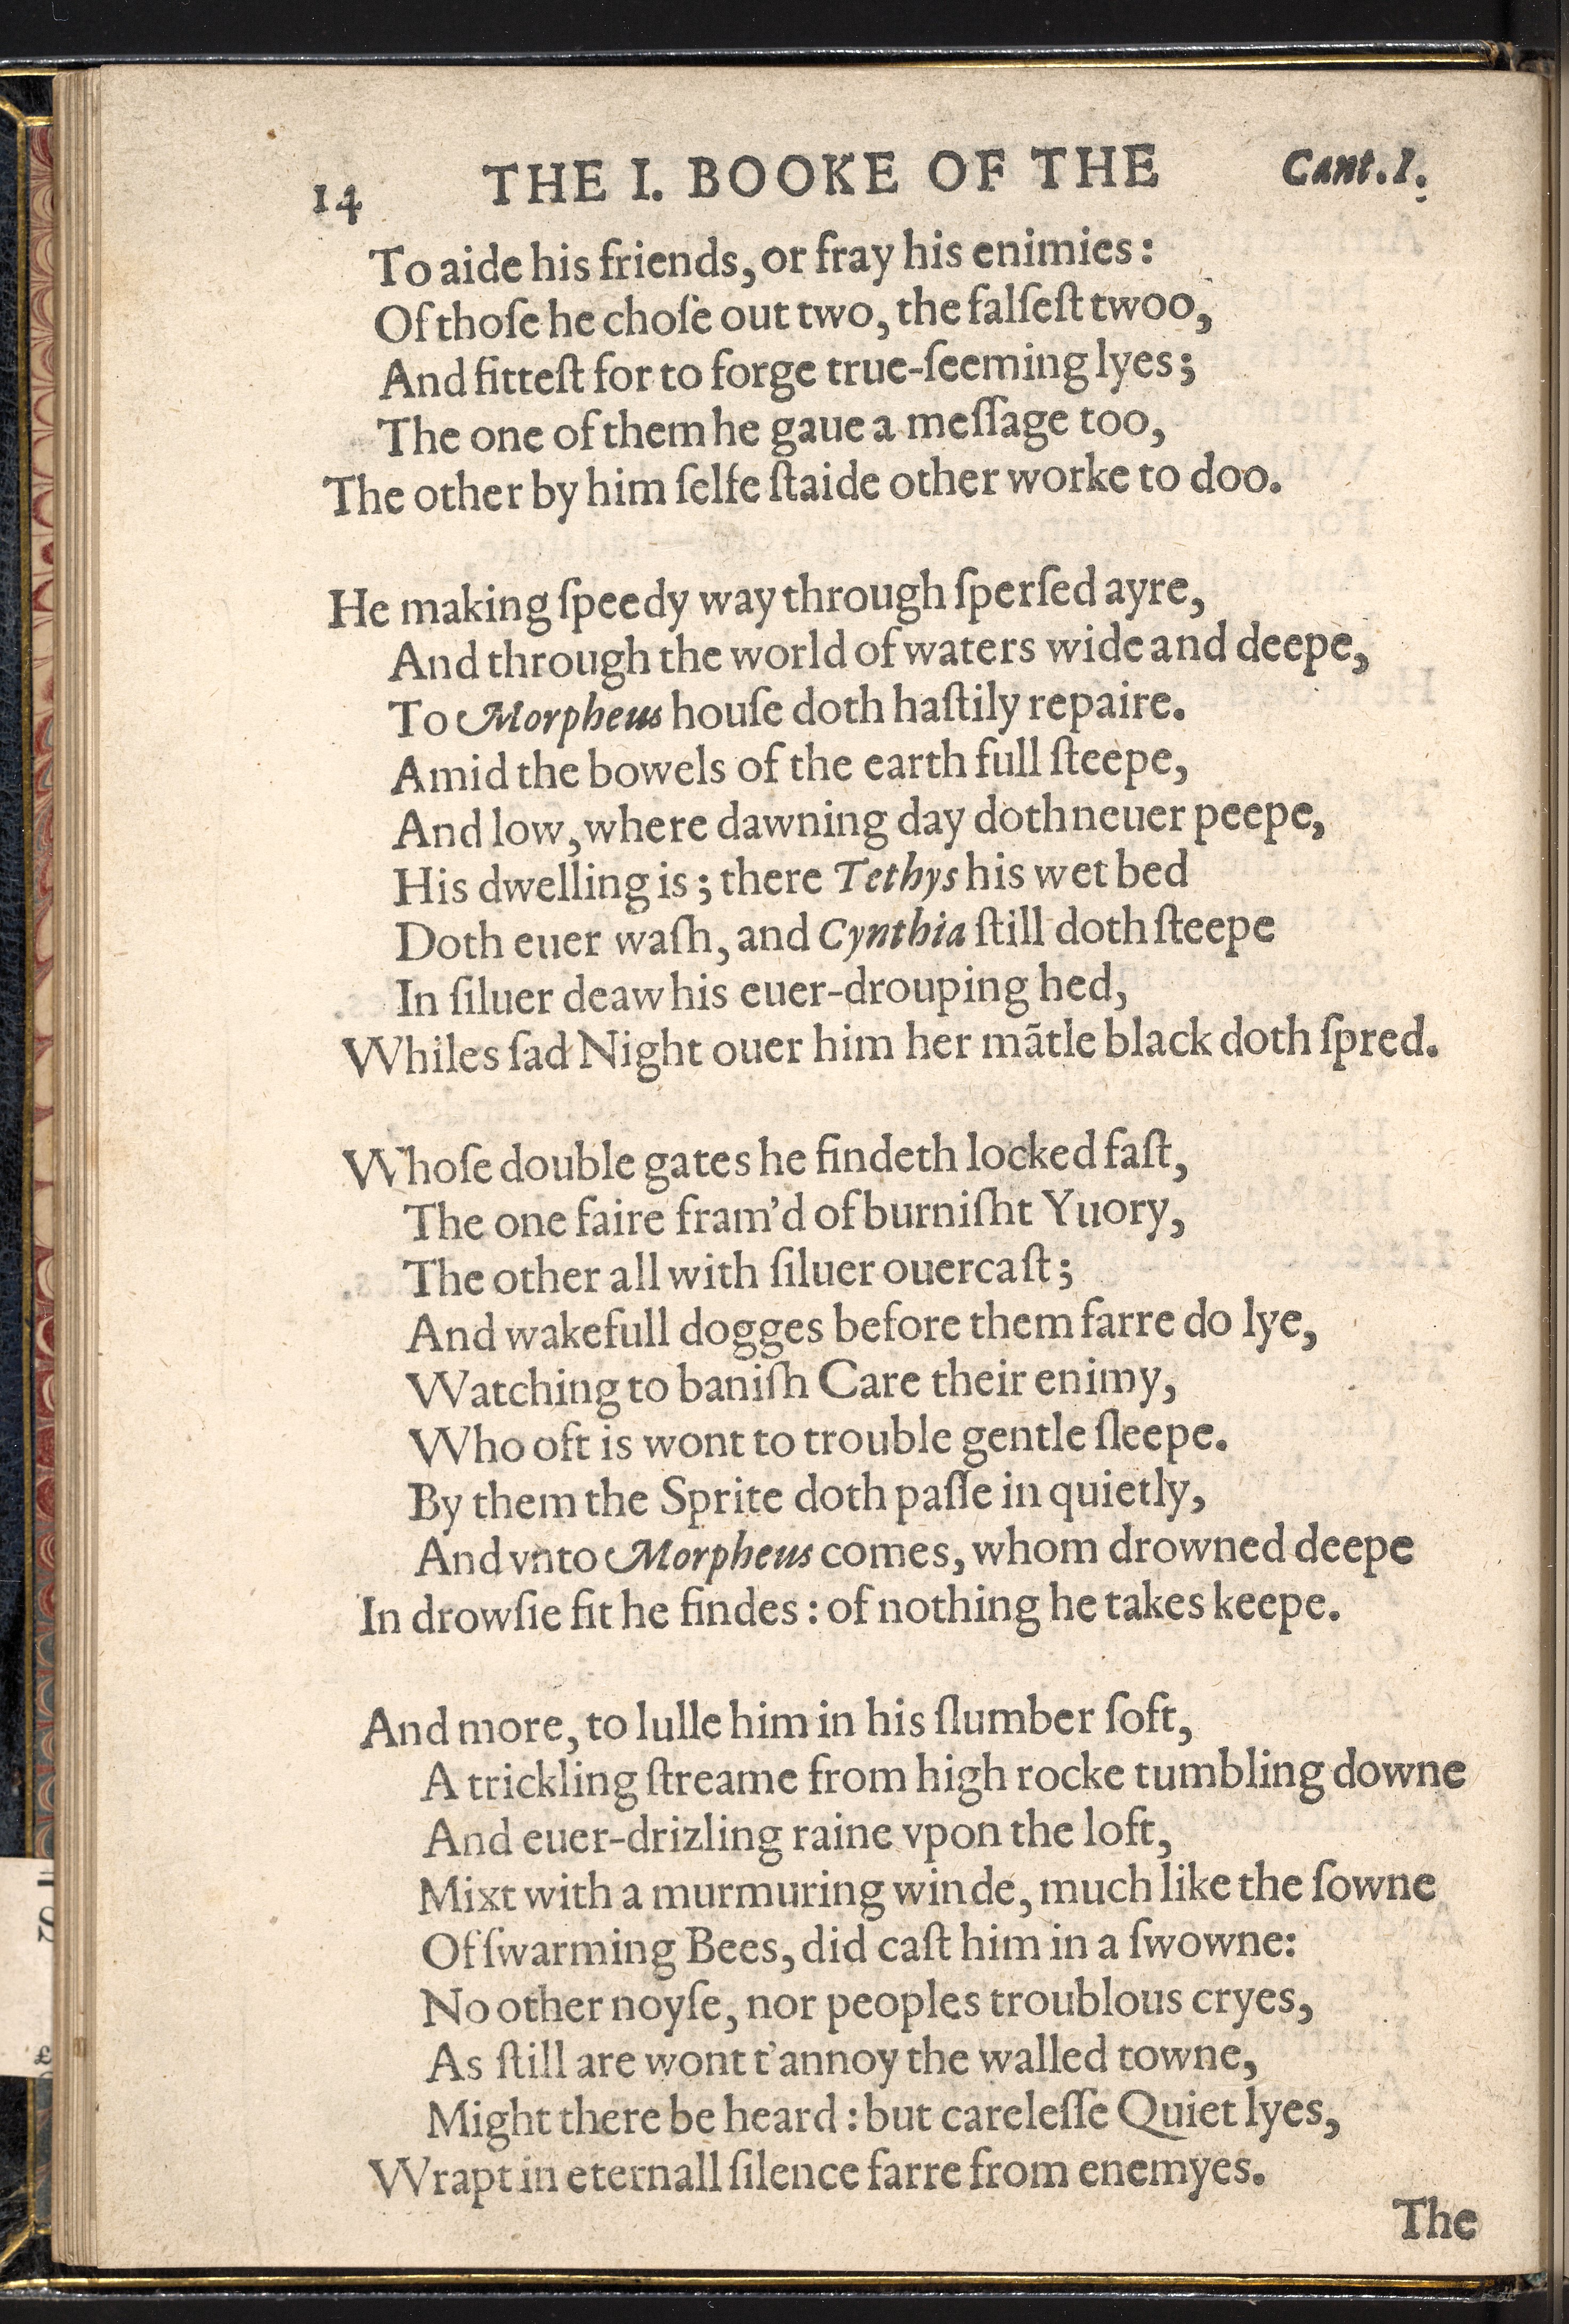 14 THE I. BOOKE OF THE Cant. I.
To aide his friends, or fray his enimies:
Of thoſe he choſe out two, the falſeſt twoo,
And fitteſt for to forge true-ſeeming lyes;
The one of them he gaue a meſſage too,
The other by him ſelfe ſtaide other worke to doo.
He making ſpeedy way through ſperſed ayre,
And through the world of waters wide and deepe,
To Morpheus houſe doth haſtily repaire.
Amid the bowels of the earth full ſteepe,
And low, where dawning day doth neuer peepe,
His dwelling is; there Tethys his wet bed
Doth euer waſh, and Cynthia ſtill doth ſteepe
In ſiluer deaw his euer-drouping hed,
Whiles ſad Night ouer him her mãtle black doth ſpred.
Whoſe double gates he findeth locked faſt,
The one faire fram'd of burniſht Yuory,
The other all with ſiluer ouercaſt;
And wakefull dogges before them farre do lye,
Watching to baniſh Care their enimy,
Who oft is wont to trouble gentle ſleepe.
By them the Sprite doth paſſe in quietly,
And vnto Morpheus comes, whom drowned deepe
In drowſie fit he findes: of nothing he takes keepe.
And more, to lulle him in his ſlumber ſoft,
A trickling ſtreame from high rocke tumbling downe
And euer-drizling raine vpon the loft,
Mixt with a murmuring winde, much like the ſowne
Of ſwarming Bees, did caſt him in a ſwowne:
No other noyſe, nor peoples troublous cryes,
As ſtill are wont t'annoy the walled towne,
Might there be heard: but careleſſe Quiet lyes,
Wrapt in eternall ſilence farre from enemyes.
The